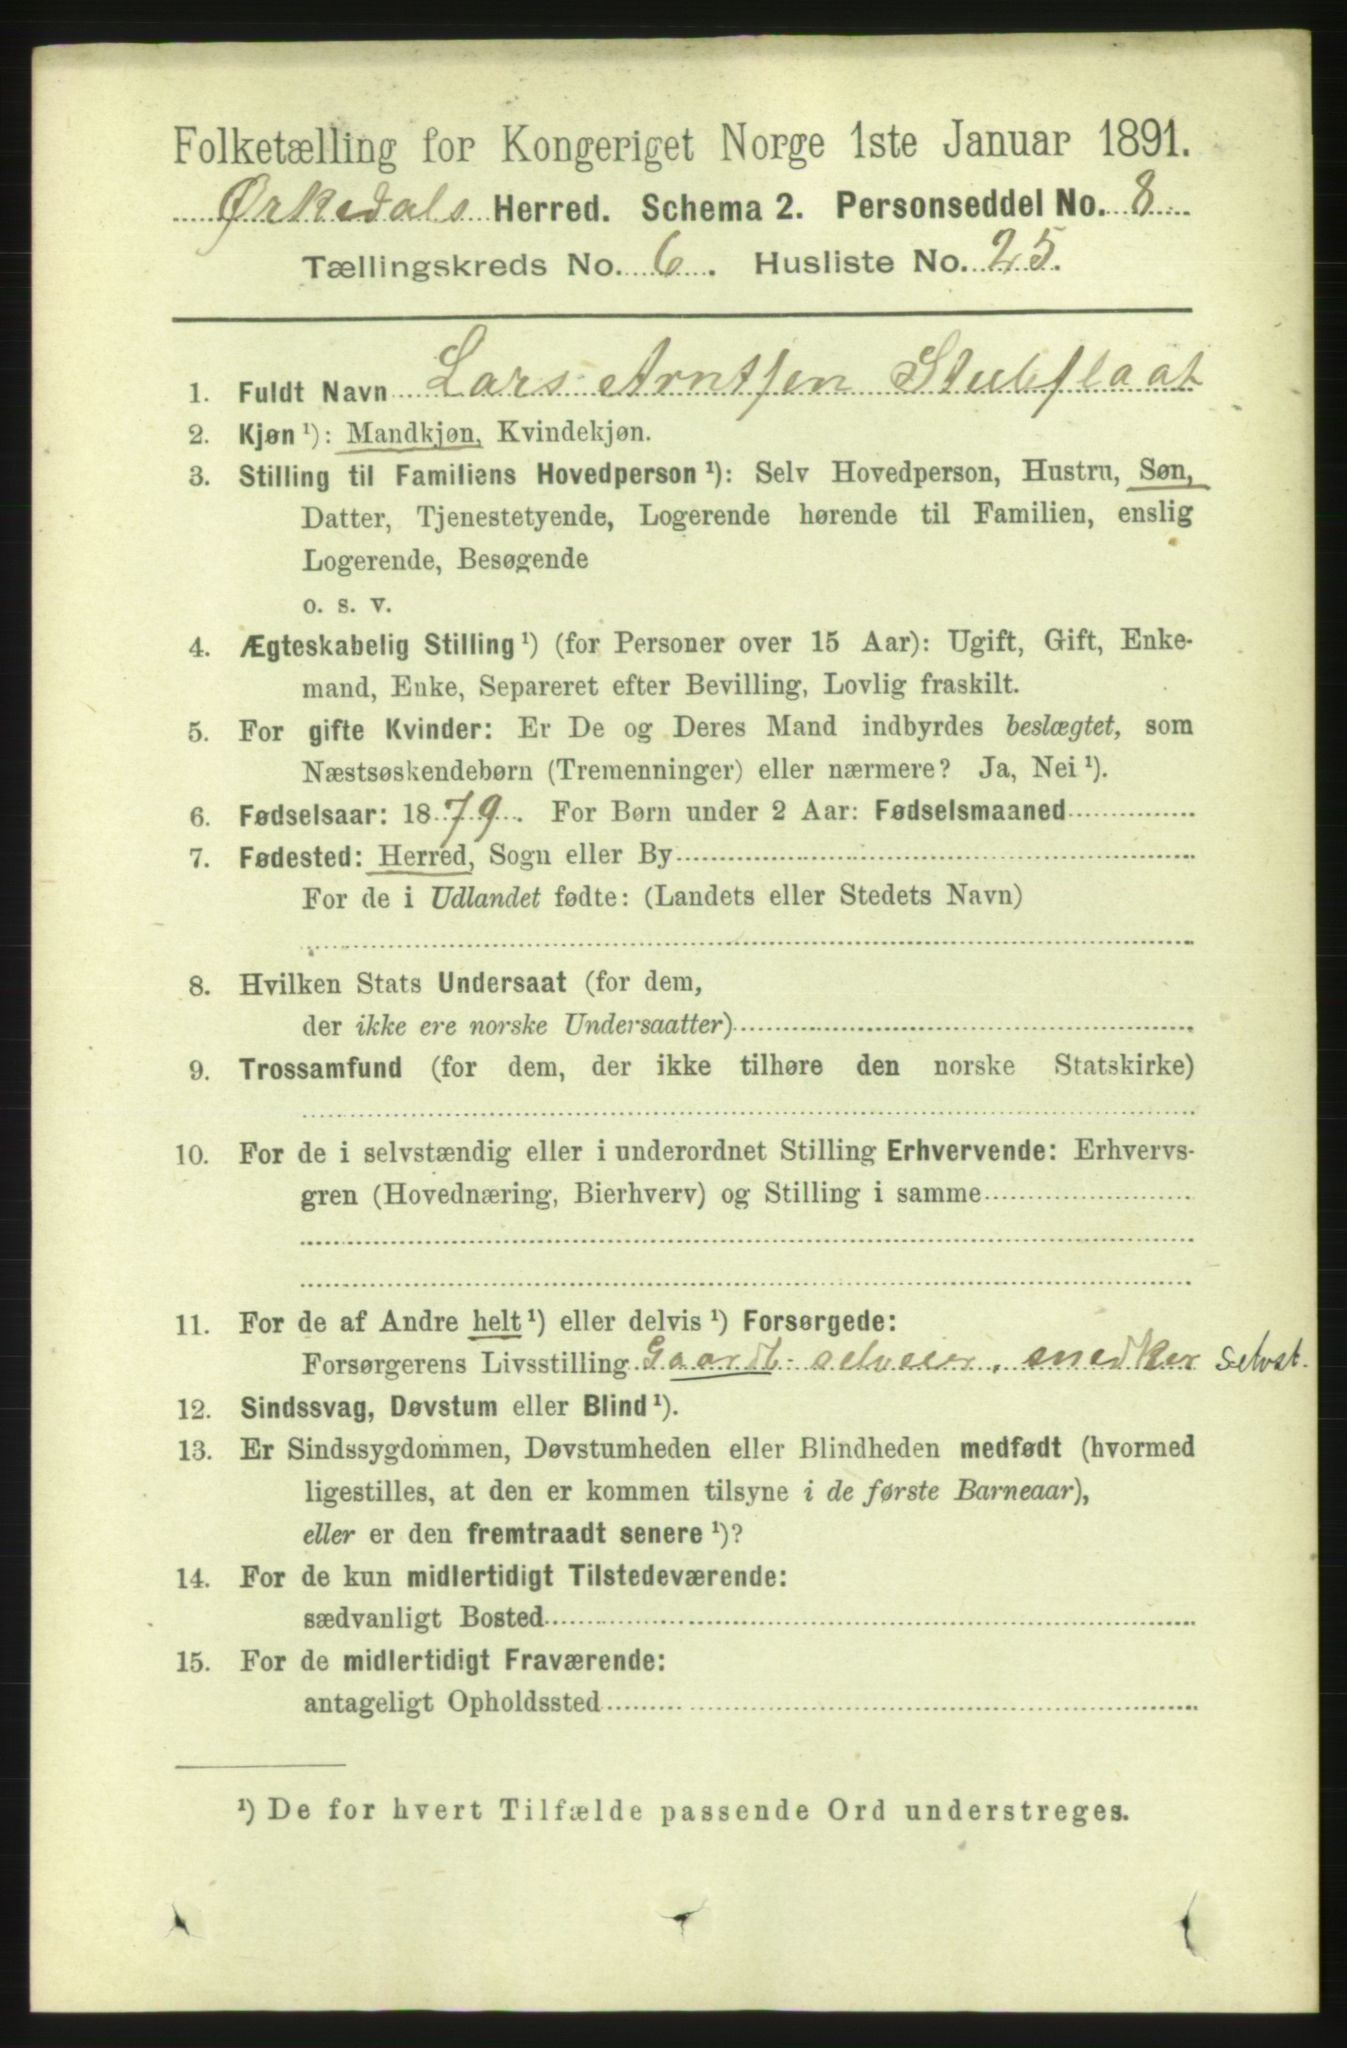 Folketælling for Kongeriget Norge 1ste Januar 1891.
Ørkedals Herred. Schema 2. Personseddel No. 8
Tællingskreds No. 6. Husliste No. 25.
1. Fuldt Navn Lars Arntsen Stubflaat
2. Kjøn ¹): Mandkjøn, Kvindekjøn.
3. Stilling til Familiens Hovedperson ¹): Selv Hovedperson, Hustru, Søn,
Datter, Tjenestetyende, Logerende hørende til Familien, enslig
Logerende, Besøgende
o. s. v.
4. Ægteskabelig Stilling ¹) (for Personer over 15 Aar): Ugift, Gift, Enke-
mand, Enke, Separeret efter Bevilling, Lovlig fraskilt.
5. For gifte Kvinder: Er De og Deres Mand indbyrdes beslægtet, som
Næstsøskendebørn (Tremenninger) eller nærmere? Ja, Nei ¹).
6. Fødselsaar: 1879. For Børn under 2 Aar: Fødselsmaaned
7. Fødested: Herred, Sogn eller By
For de i Udlandet fødte: (Landets eller Stedets Navn)
8. Hvilken Stats Undersaat (for dem,
der ikke ere norske Undersaatter)
9. Trossamfund (for dem, der ikke tilhøre den norske Statskirke)
10. For de i selvstændig eller i underordnet Stilling Erhvervende: Erhvervs-
gren (Hovednæring, Bierhverv) og Stilling i samme
11. For de af Andre helt ¹) eller delvis ¹) Forsørgede:
Forsørgerens Livsstilling Gaardb. selveier, snedker selvst.
12. Sindssvag, Døvstum eller Blind ¹).
13. Er Sindssygdommen, Døvstumheden eller Blindheden medfødt (hvormed
ligestilles, at den er kommen tilsyne i de første Barneaar),
eller er den fremtraadt senere ¹)?
14. For de kun midlertidigt Tilstedeværende:
sædvanligt Bosted
15. For de midlertidigt Fraværende:
antageligt Opholdssted
¹) De for hvert Tilfælde passende Ord understreges.